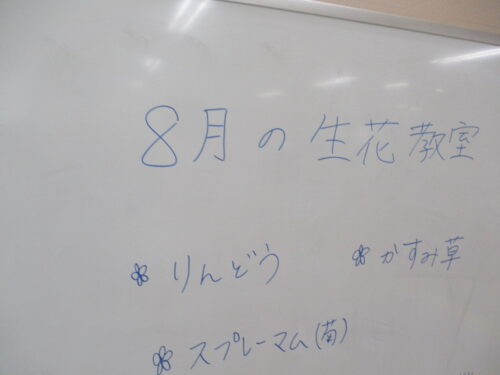 8月の生花教室
りんどう
かすみ草
スプレーマム(菊)